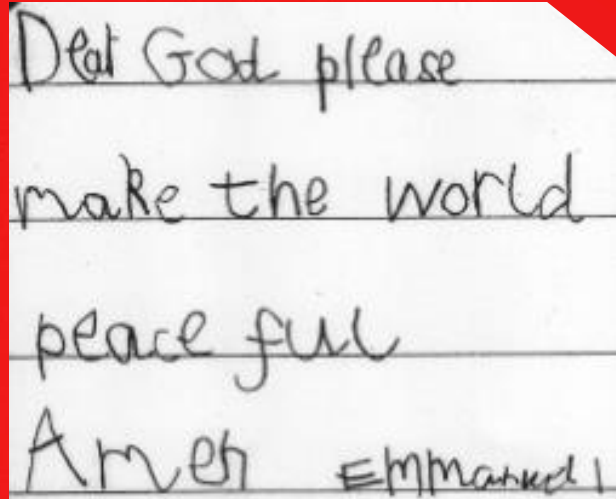 Dear God please
make the world
peace ful
Amen Emmanuel